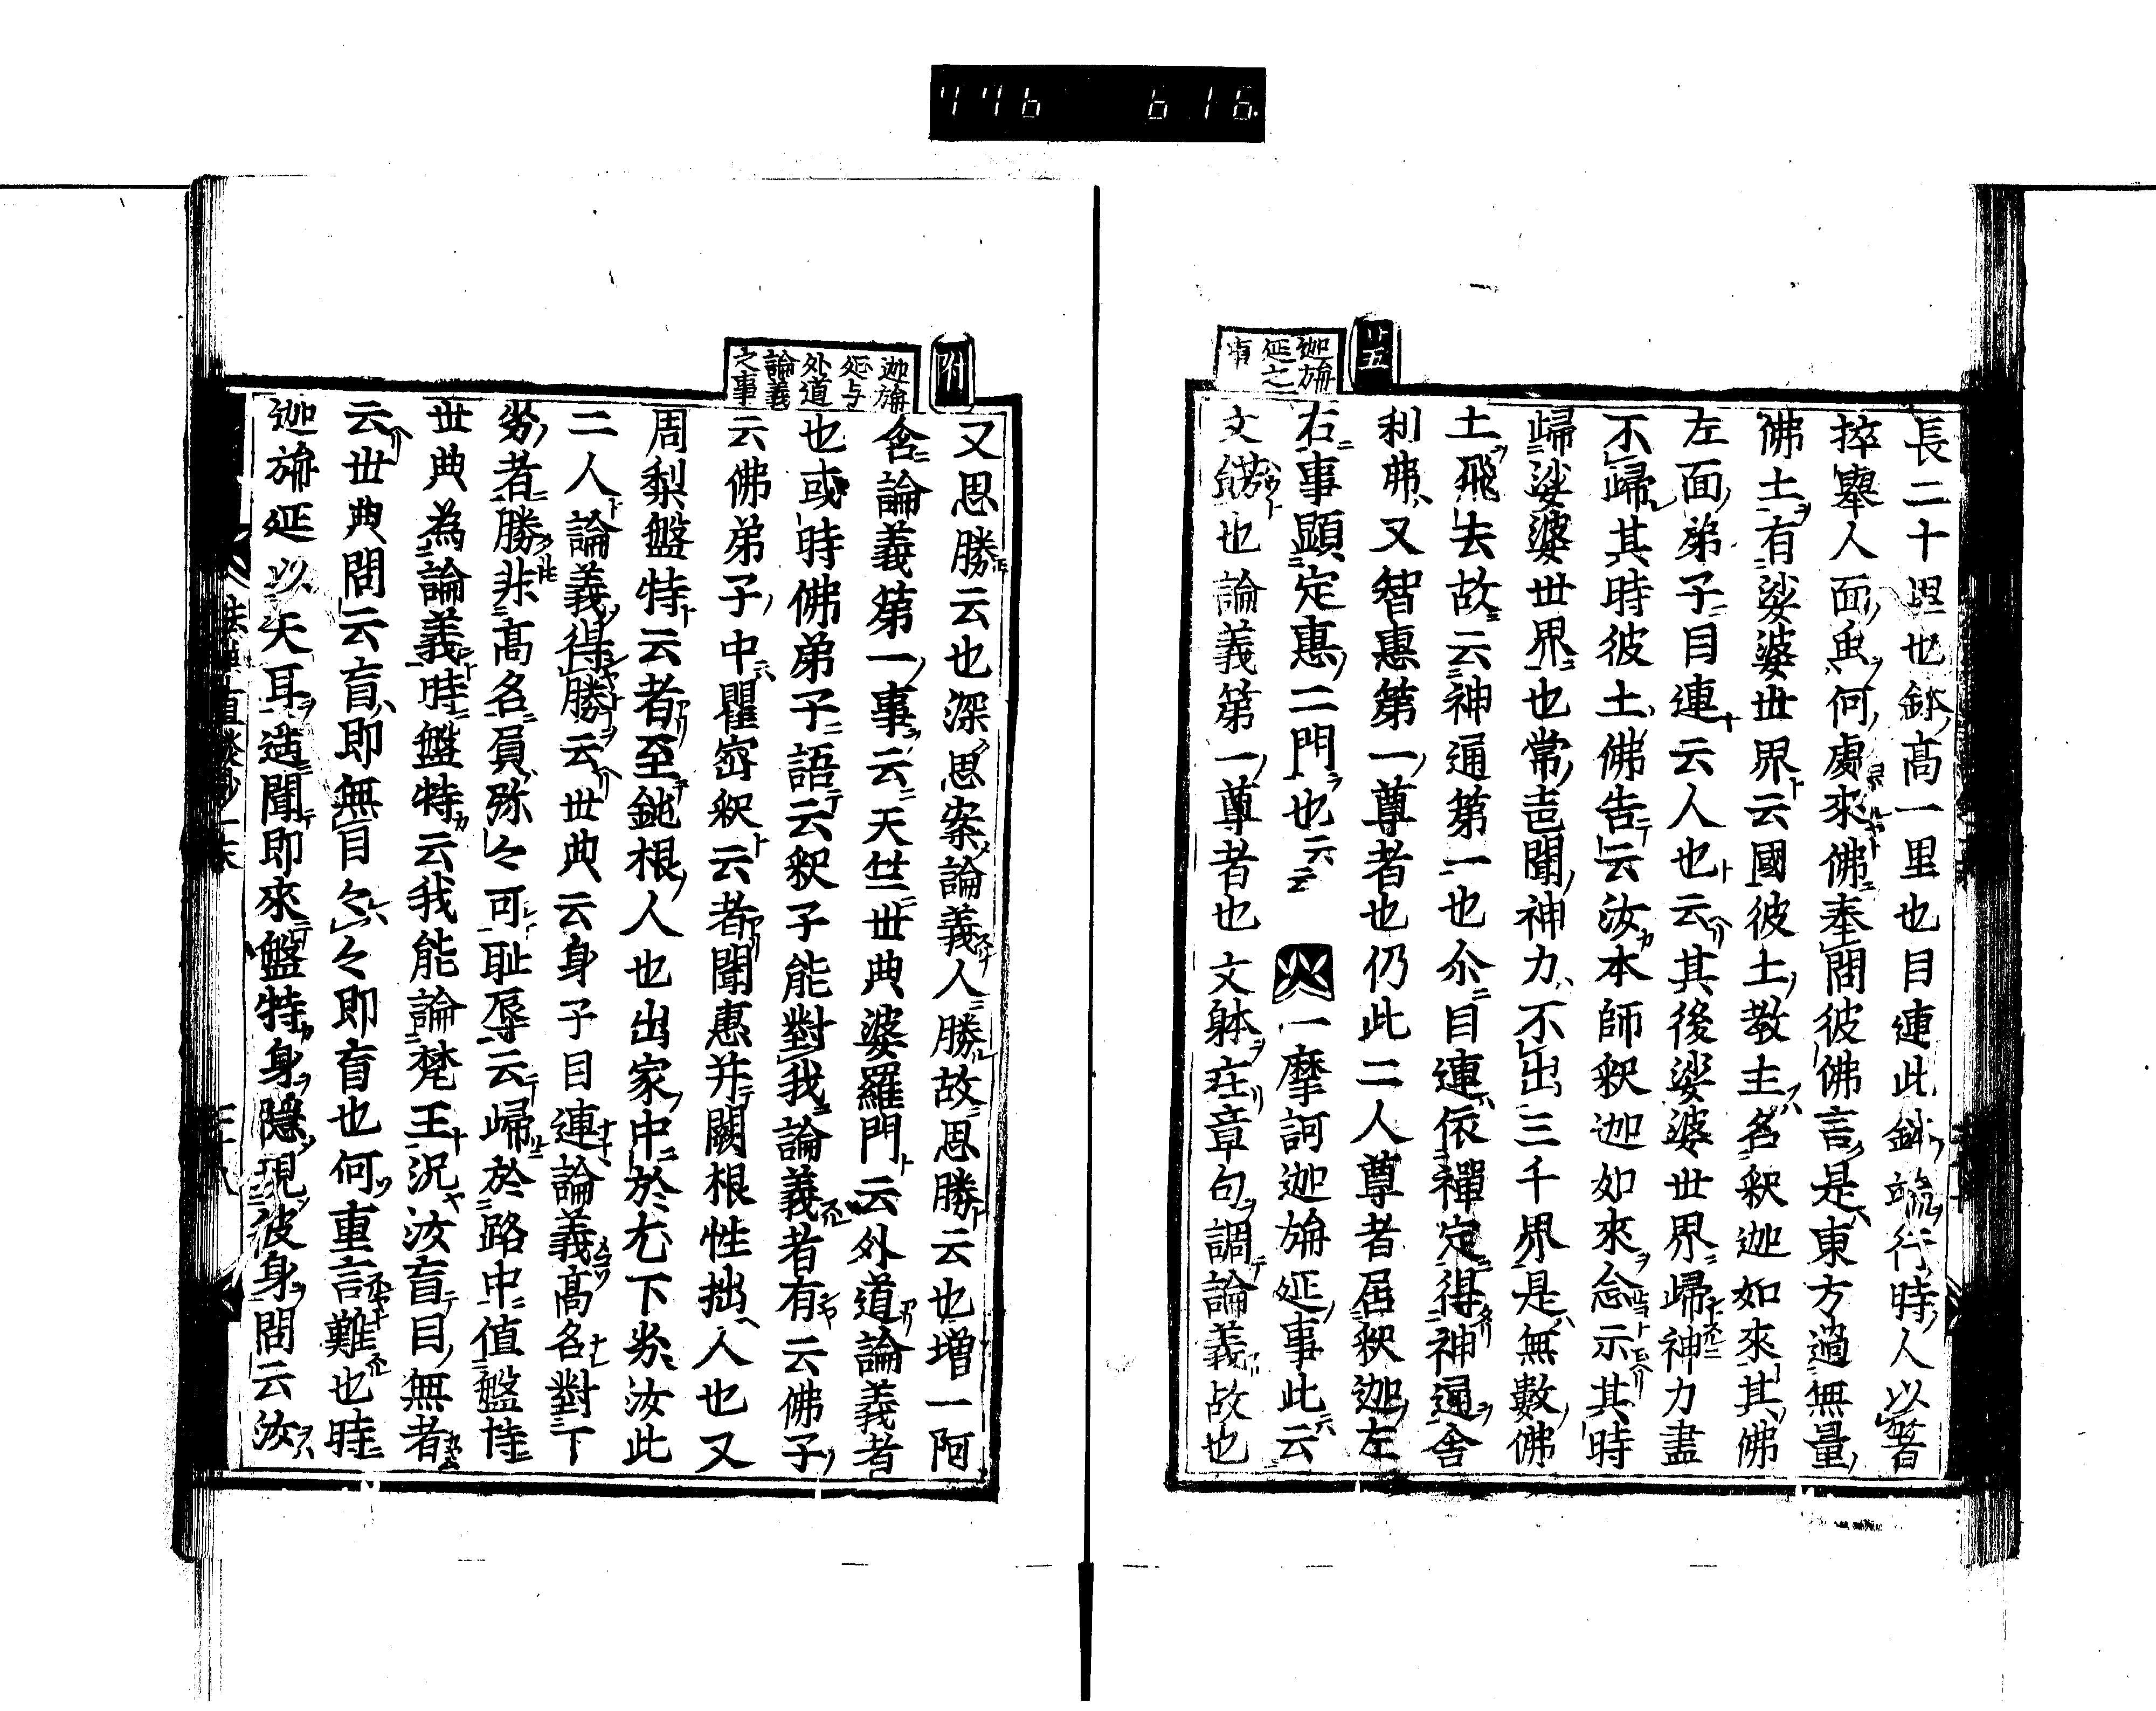 776 616
廿五
迦旃
延之
事
長二十里也鉢高一里也目連此鉢端行時人以箸
捽擧人面虫何處來佛奉問彼佛言是東方過無量
佛土有娑婆世界云國彼土教主名釈迦如來其佛
左面弟子目連云人也云其後娑婆世界歸神力盡
不歸其時彼土佛告云汝本師釈迦如來念示其時
歸娑婆世界也常壱聞神力不出三千界是無數佛
土飛去故云神通第一也尒目連依禪定得神通舍
利弗又智惠第一尊者也仍此二人尊者居釈迦左
右事顕定惠二門也云云 一摩訶迦旃延事此云
文餝也論義第一尊者也文躰在章句調論義故也
附
迦旃
延与
外道
論義
之事
又思勝云也深思案論義人勝故思勝云也增一阿
含論義第一事云天竺世典婆羅門云外道論義者
也或時佛弟子語云釈子能對我論義者有云佛子
云佛弟子中瞿宻釈云者聞惠并闕根性拙人也又
周梨盤特云者至鈍根人也出家中於尤下劣汝此
二人論義得勝云世典云身子目連論義高名對下
劣者勝非高名負弥々可耻辱云歸於路中値盤特
世典為論義時盤特云我能論梵王況汝盲目無者
云世典問云盲即無目々々即盲也何重言難也時
迦旃延以天耳遥聞即來盤特身隠現彼身問云汝